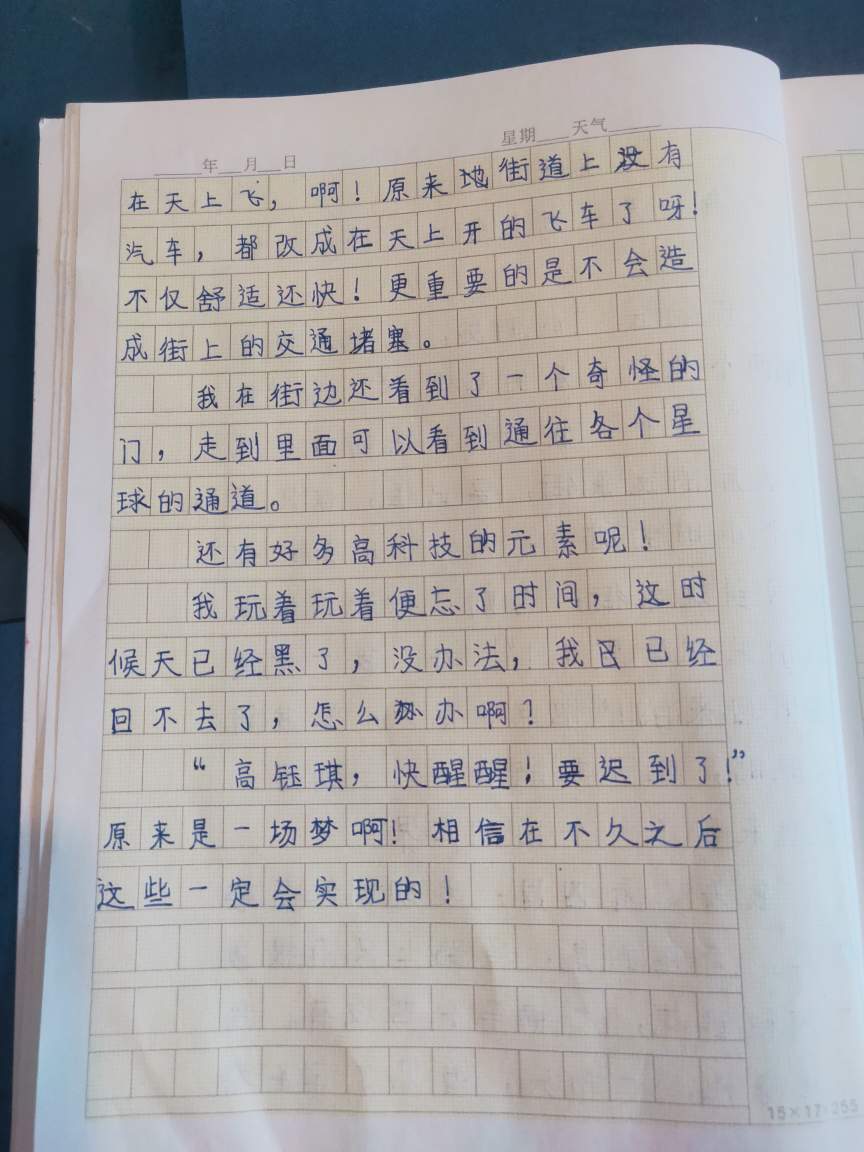 年 月 日 星期 天气
在天上飞，啊！原来地街道上没有
汽车，都改成在天上开的飞车了呀！
不仅舒适还快！更重要的是不会造
成街上的交通堵塞。
我在街边还看到了一个奇怪的
门，走到里面可以看到通往各个星
球的通道。
还有好多高科技的元素呢！
我玩着玩着便忘了时间，这时
候天已经黑了，没办法，我已经
回不去了，怎么办啊？
“高钰琪，快醒醒！要迟到了！”
原来是一场梦啊！相信在不久之后
这些一定会实现的！
15×17=255